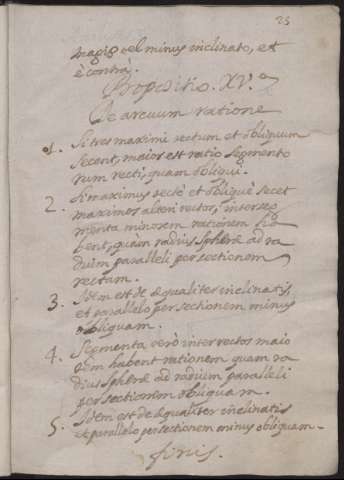 25
magis vel minus inclinato, et
è contrà.
Propositio. XV.ª
De arcuum ratione
1. Si tres maximi rectum et obliquum
secent, maior est ratio segmento
rum recti, quam obliqui.
2. Si maximus rectè et obliquè secet
maximos alteri rector, interseg
menta minorem rationem ha
bent, quàm radius sphęrę ad ra
duim paralleli per sectionem
rectam.
3. Idem est de ęqualiter inclinatis,
et parallelo per sectionem minus
obliquam.
4. Segmenta verò inter rectos maio
rem habent rationem quam ra
dius sphęrę ad radium paralleli
per sectionem obliquam.
5. Idem est de ęqualiter inclinatis
et parallelo per sectionem minus obliquam.
finis.